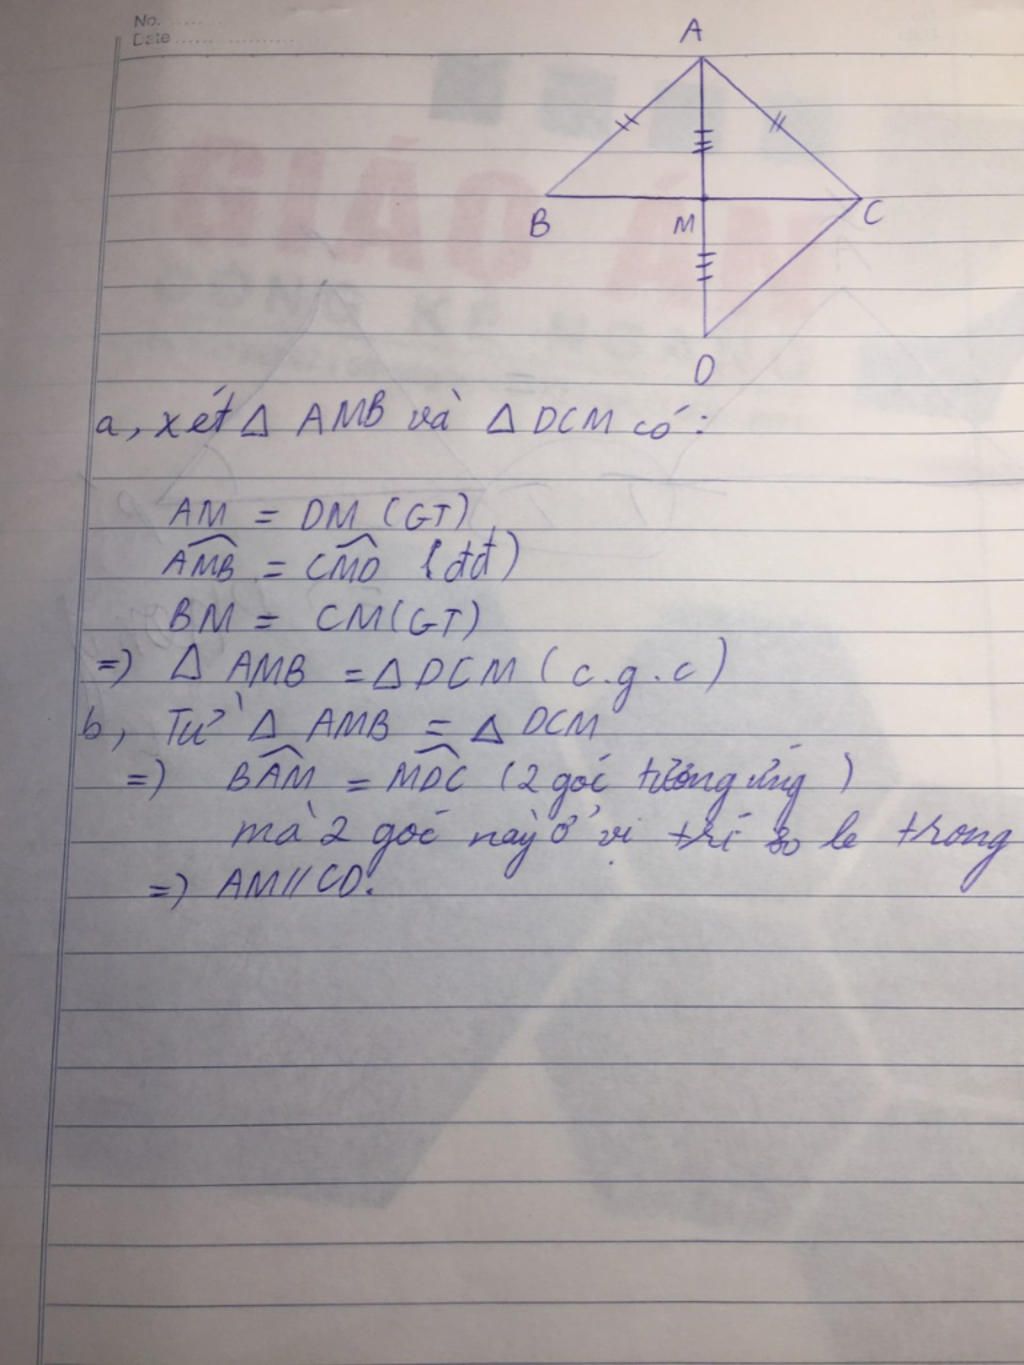 No.
Date
A
B
M
C
D
a, xét Δ AMB và Δ DCM có:
AM = DM (GT)
AMB = CMD (đđ)
BM = CM (GT)
=) Δ AMB = Δ DCM (c.g.c)
b, Từ Δ AMB = Δ DCM
=) BAM = MDC (2 góc tương ứng)
mà 2 góc này ở vị trí so le trong
=) AM // CD.